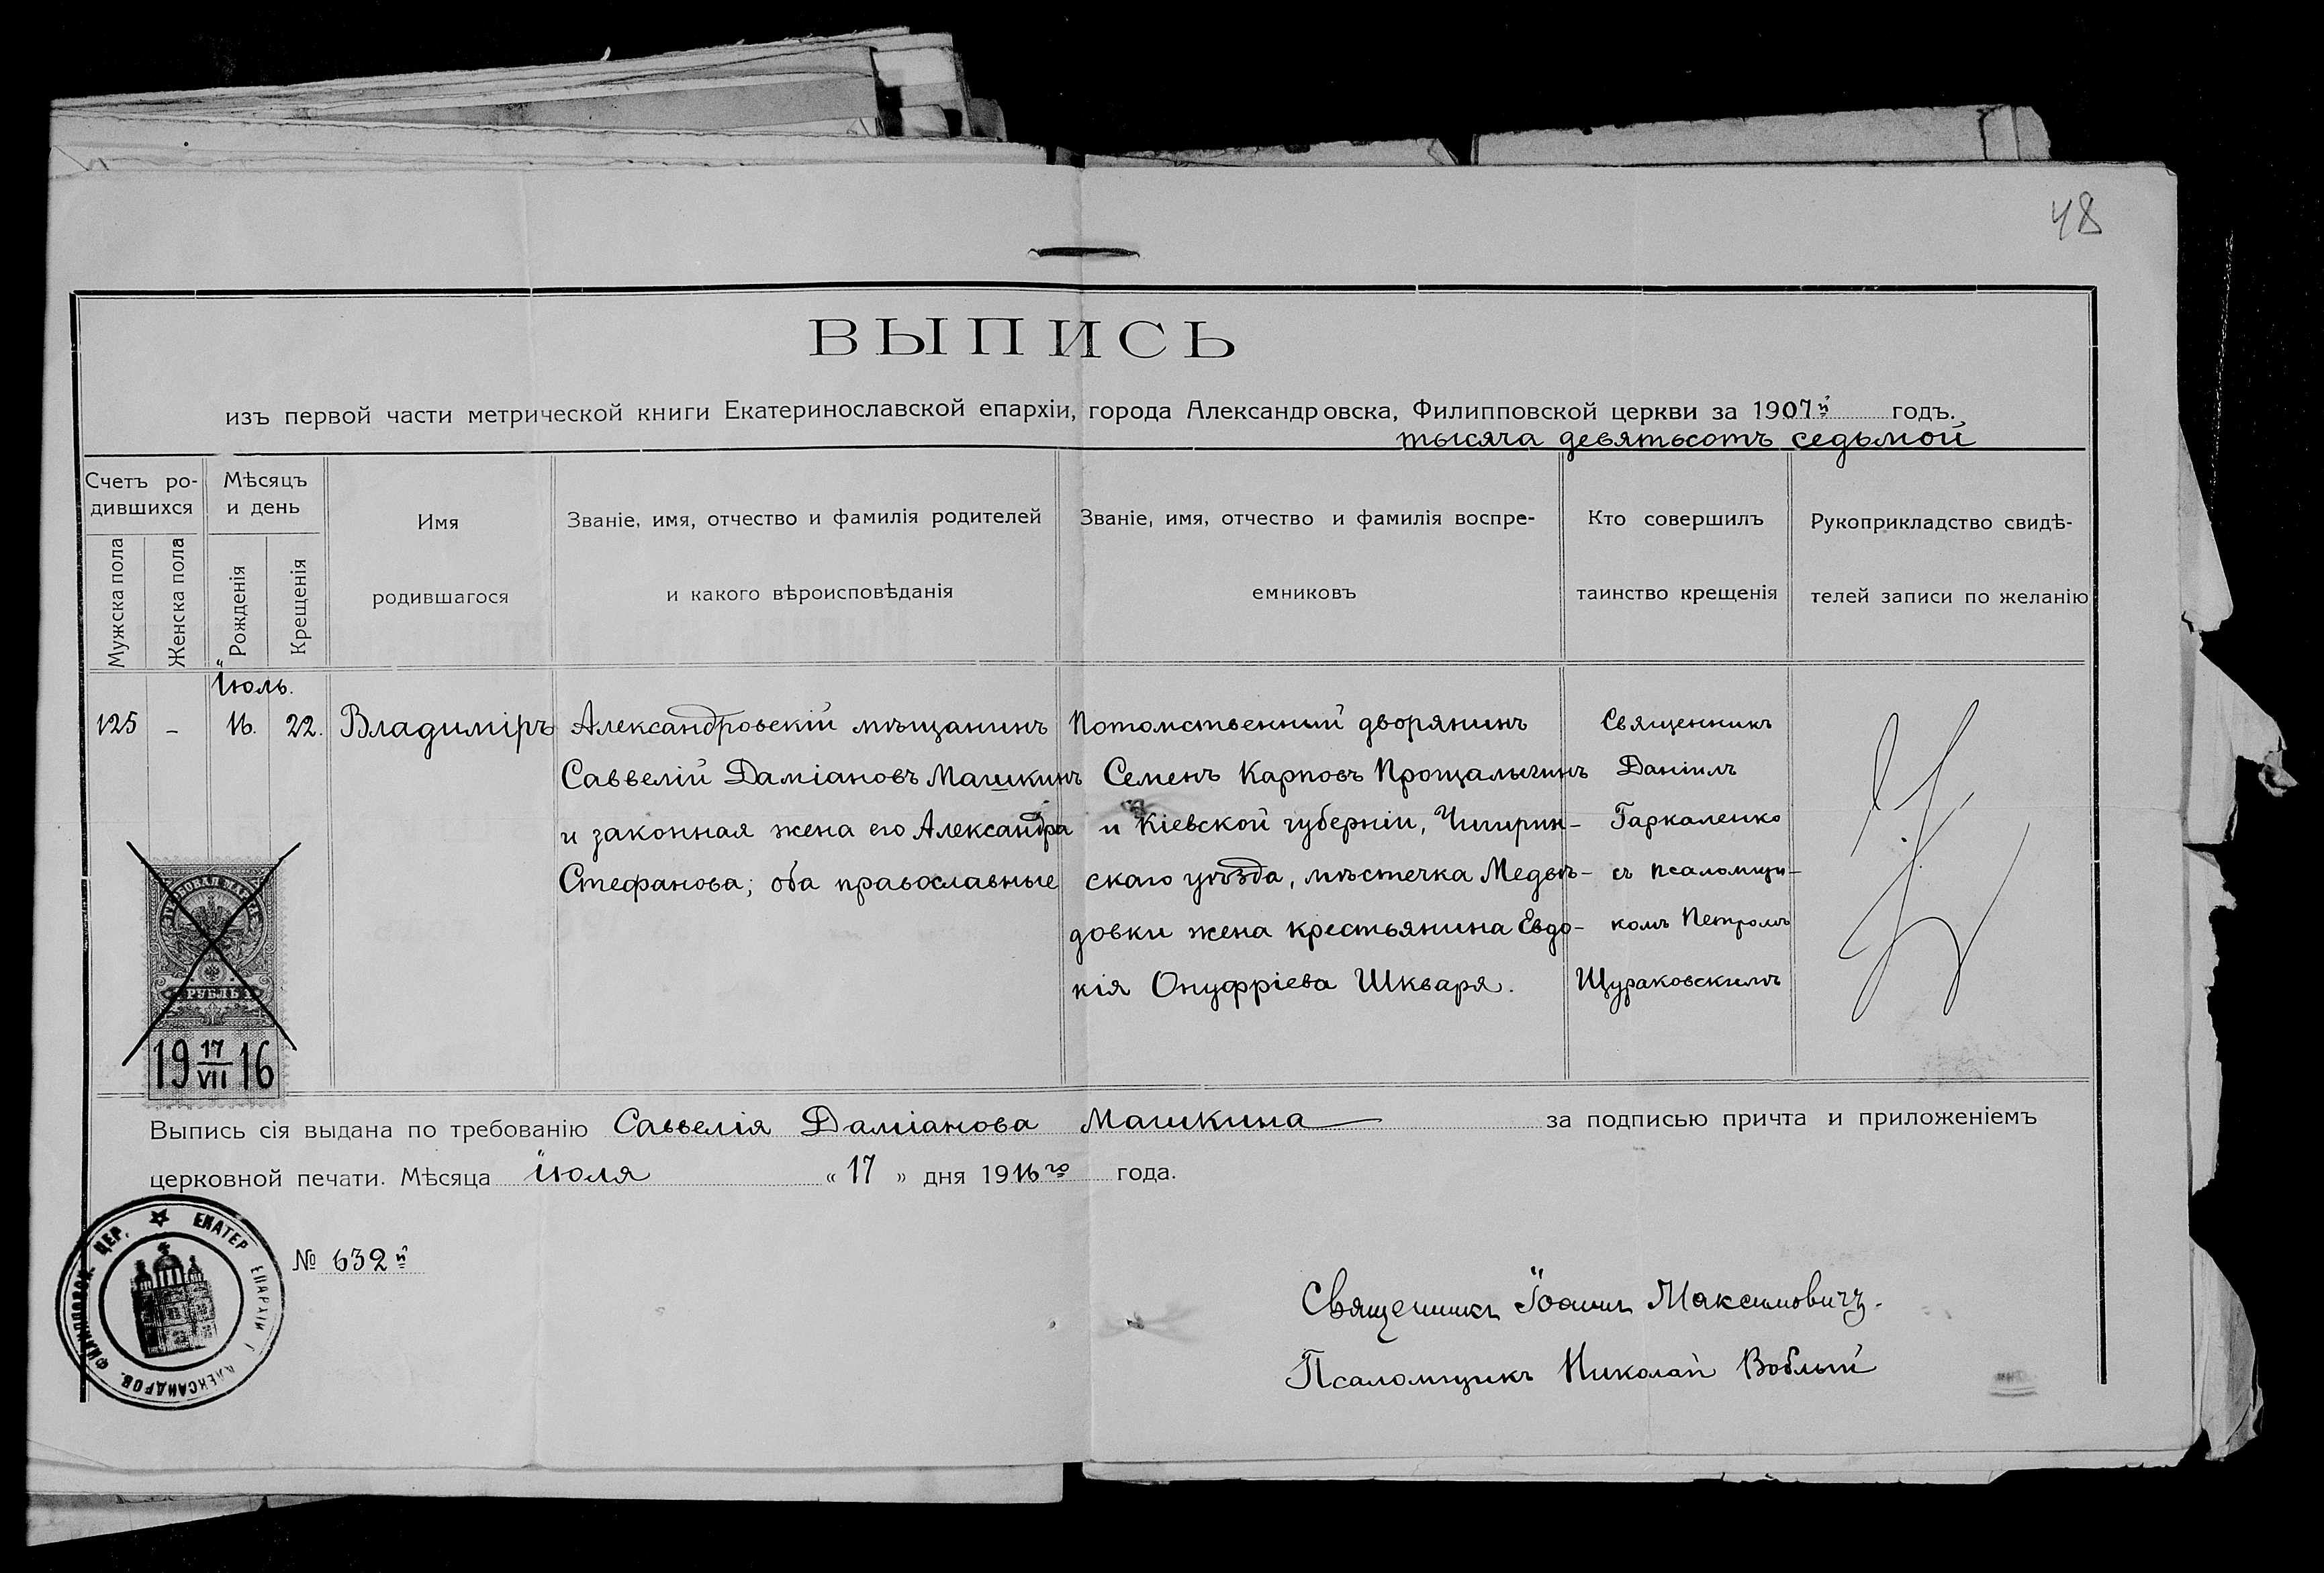 48
ВЫПИСЬ
изъ первой части метрической книги Екатеринославской епархіи, города Александровска, Филипповской церкви за 1907й годъ.
тысяча девятьсотъ седьмой
Счетъ ро-
дившихся
Мужска пола
Женска пола
Мѣсяцъ
и день
Рожденія
Крещенія
Имя
родившагося
Званіе, имя, отчество и фамилія родителей
и какого вѣроисповѣданія
Званіе, имя, отчество и фамилія воспре-
емниковъ
Кто совершилъ
таинство крещенія
Рукоприкладство свидѣ-
телей записи по желанію
Іюль.
125 - 16. 22. Владиміръ
Александровскій мѣщанинъ
Саввелій Даміановъ Машкинъ
и законная жена его Александра
Стефанова; оба православные
Потомственный дворянинъ
Семенъ Карповъ Прощалыгинъ
и Кіевской губерніи, Чигирин-
скаго уѣзда, мѣстечка Медвѣ-
довки жена крестьянина Евдо-
кія Онуфріева Шкваря.
Священникъ
Даніилъ
Гаркаленко
съ псаломщи-
комъ Петромъ
Щураковскимъ
ГЕРБОВАЯ МАРКА
1 РУБЛЬ 1
19 17/VII 16
Выпись сія выдана по требованію Саввелія Даміанова Машкина за подписью причта и приложеніемъ
церковной печати. Мѣсяца іюля « 17 » дня 1916го года.
ФИЛИПОВСК. ЦЕР. ЕКАТЕР ЕПАРХІИ Г АЛЕКСАНДРОВ.
№ 632й
Священникъ Іоаннъ Максимовичъ.
Псаломщикъ Николай Воблый